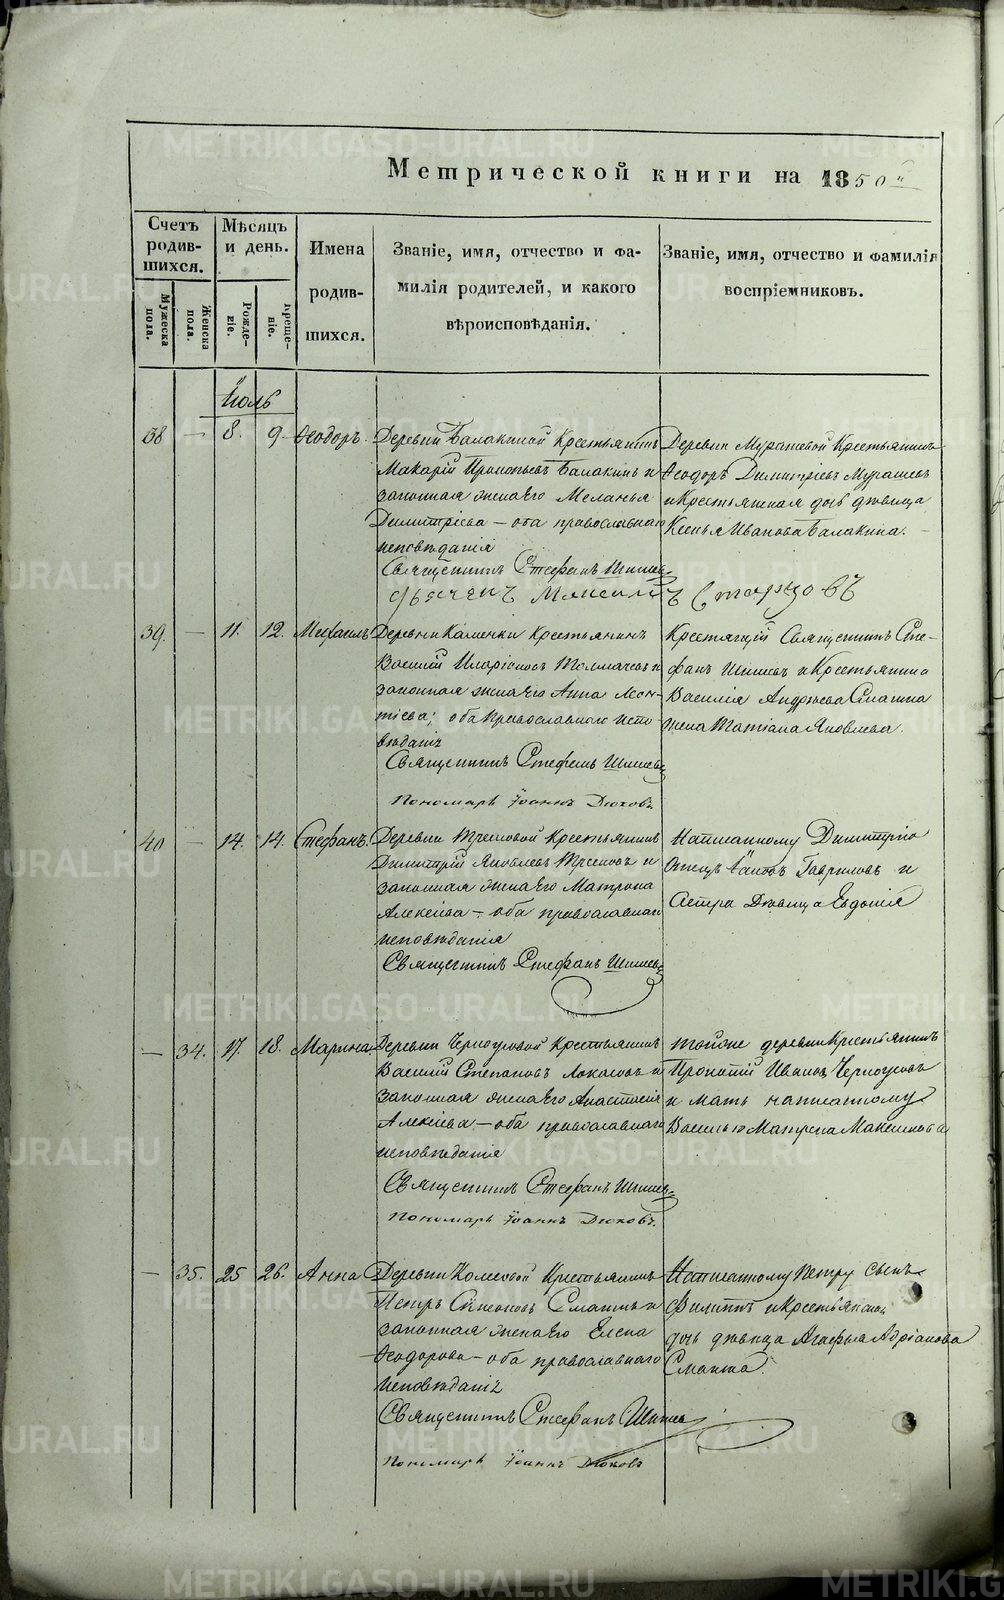 METRIKI.GASO-URAL.RU
Метрической книги на 1850й
Счетъ родив-шихся.
Мѣсяцъ и день.
Имена родив-шихся.
Званіе, имя, отчество и фа-
милія родителей, и какого
вѣроисповѣданія.
Званіе, имя, отчество и фамилія
воспріемниковъ.
Мужеска пола.
Женска пола.
Рожде-ніе.
Креще-ніе.
Іюль
38 — 8. 9. Ѳеодоръ.
Деревни Балакиной Крестьянинъ
Макарій Прокопьевъ Балакинъ и
законная жена его Меланья
Димитріева — оба православнаго
исповѣданія
Священникъ Стефанъ
Дьячекъ Максимъ Старцовъ
Деревни Мурашевой Крестьянинъ
Ѳеодоръ Димитріевъ Мурашевъ
и Крестьянская дочь дѣвица
Ксенья Иванова Балакина.
39. — 11. 12.
Деревни Крестьянинъ
Василій Иларіоновъ Толмачевъ и
законная жена его Анна Леон-
тіева; оба Православнаго испо
вѣданія
Священникъ Стефанъ
Пономарь Іоаннъ Дюковъ
Священникъ Сте-
фанъ и Крестьянина
Василія Андреева
жена Татіана Яковлева.
40 — 14. 14. Стефанъ.
Деревни Крестьянинъ
Димитрій Яковлевъ и
законная жена его Матрона
Алексѣева — оба православнаго
исповѣданія
Священникъ Стефанъ
Написанному Димитрію
Гавриловъ и
сестра Дѣвица Евдокія
— 34. 17. 18. Марина
Деревни Черноусовой Крестьянинъ
Василій Степановъ и
законная жена его Анастасія
Алексѣева — оба православнаго
исповѣданія
Священникъ Стефанъ
Пономарь Іоаннъ Дюковъ.
Тойже деревни Крестьянинъ
Иванов Черноусовъ
и мать написанному
Василью Матрена Максимова
— 35. 25 26. Анна
Деревни Крестьянинъ
Петръ Симеоновъ и
законная жена его Елена
Ѳеодорова — оба православнаго
исповѣданія
Священникъ Стефанъ
Пономарь Іоаннъ Дюковъ
Написанному Петру сынъ
Филиппъ и Крестьянская
дочь дѣвица Агафья Адріанова